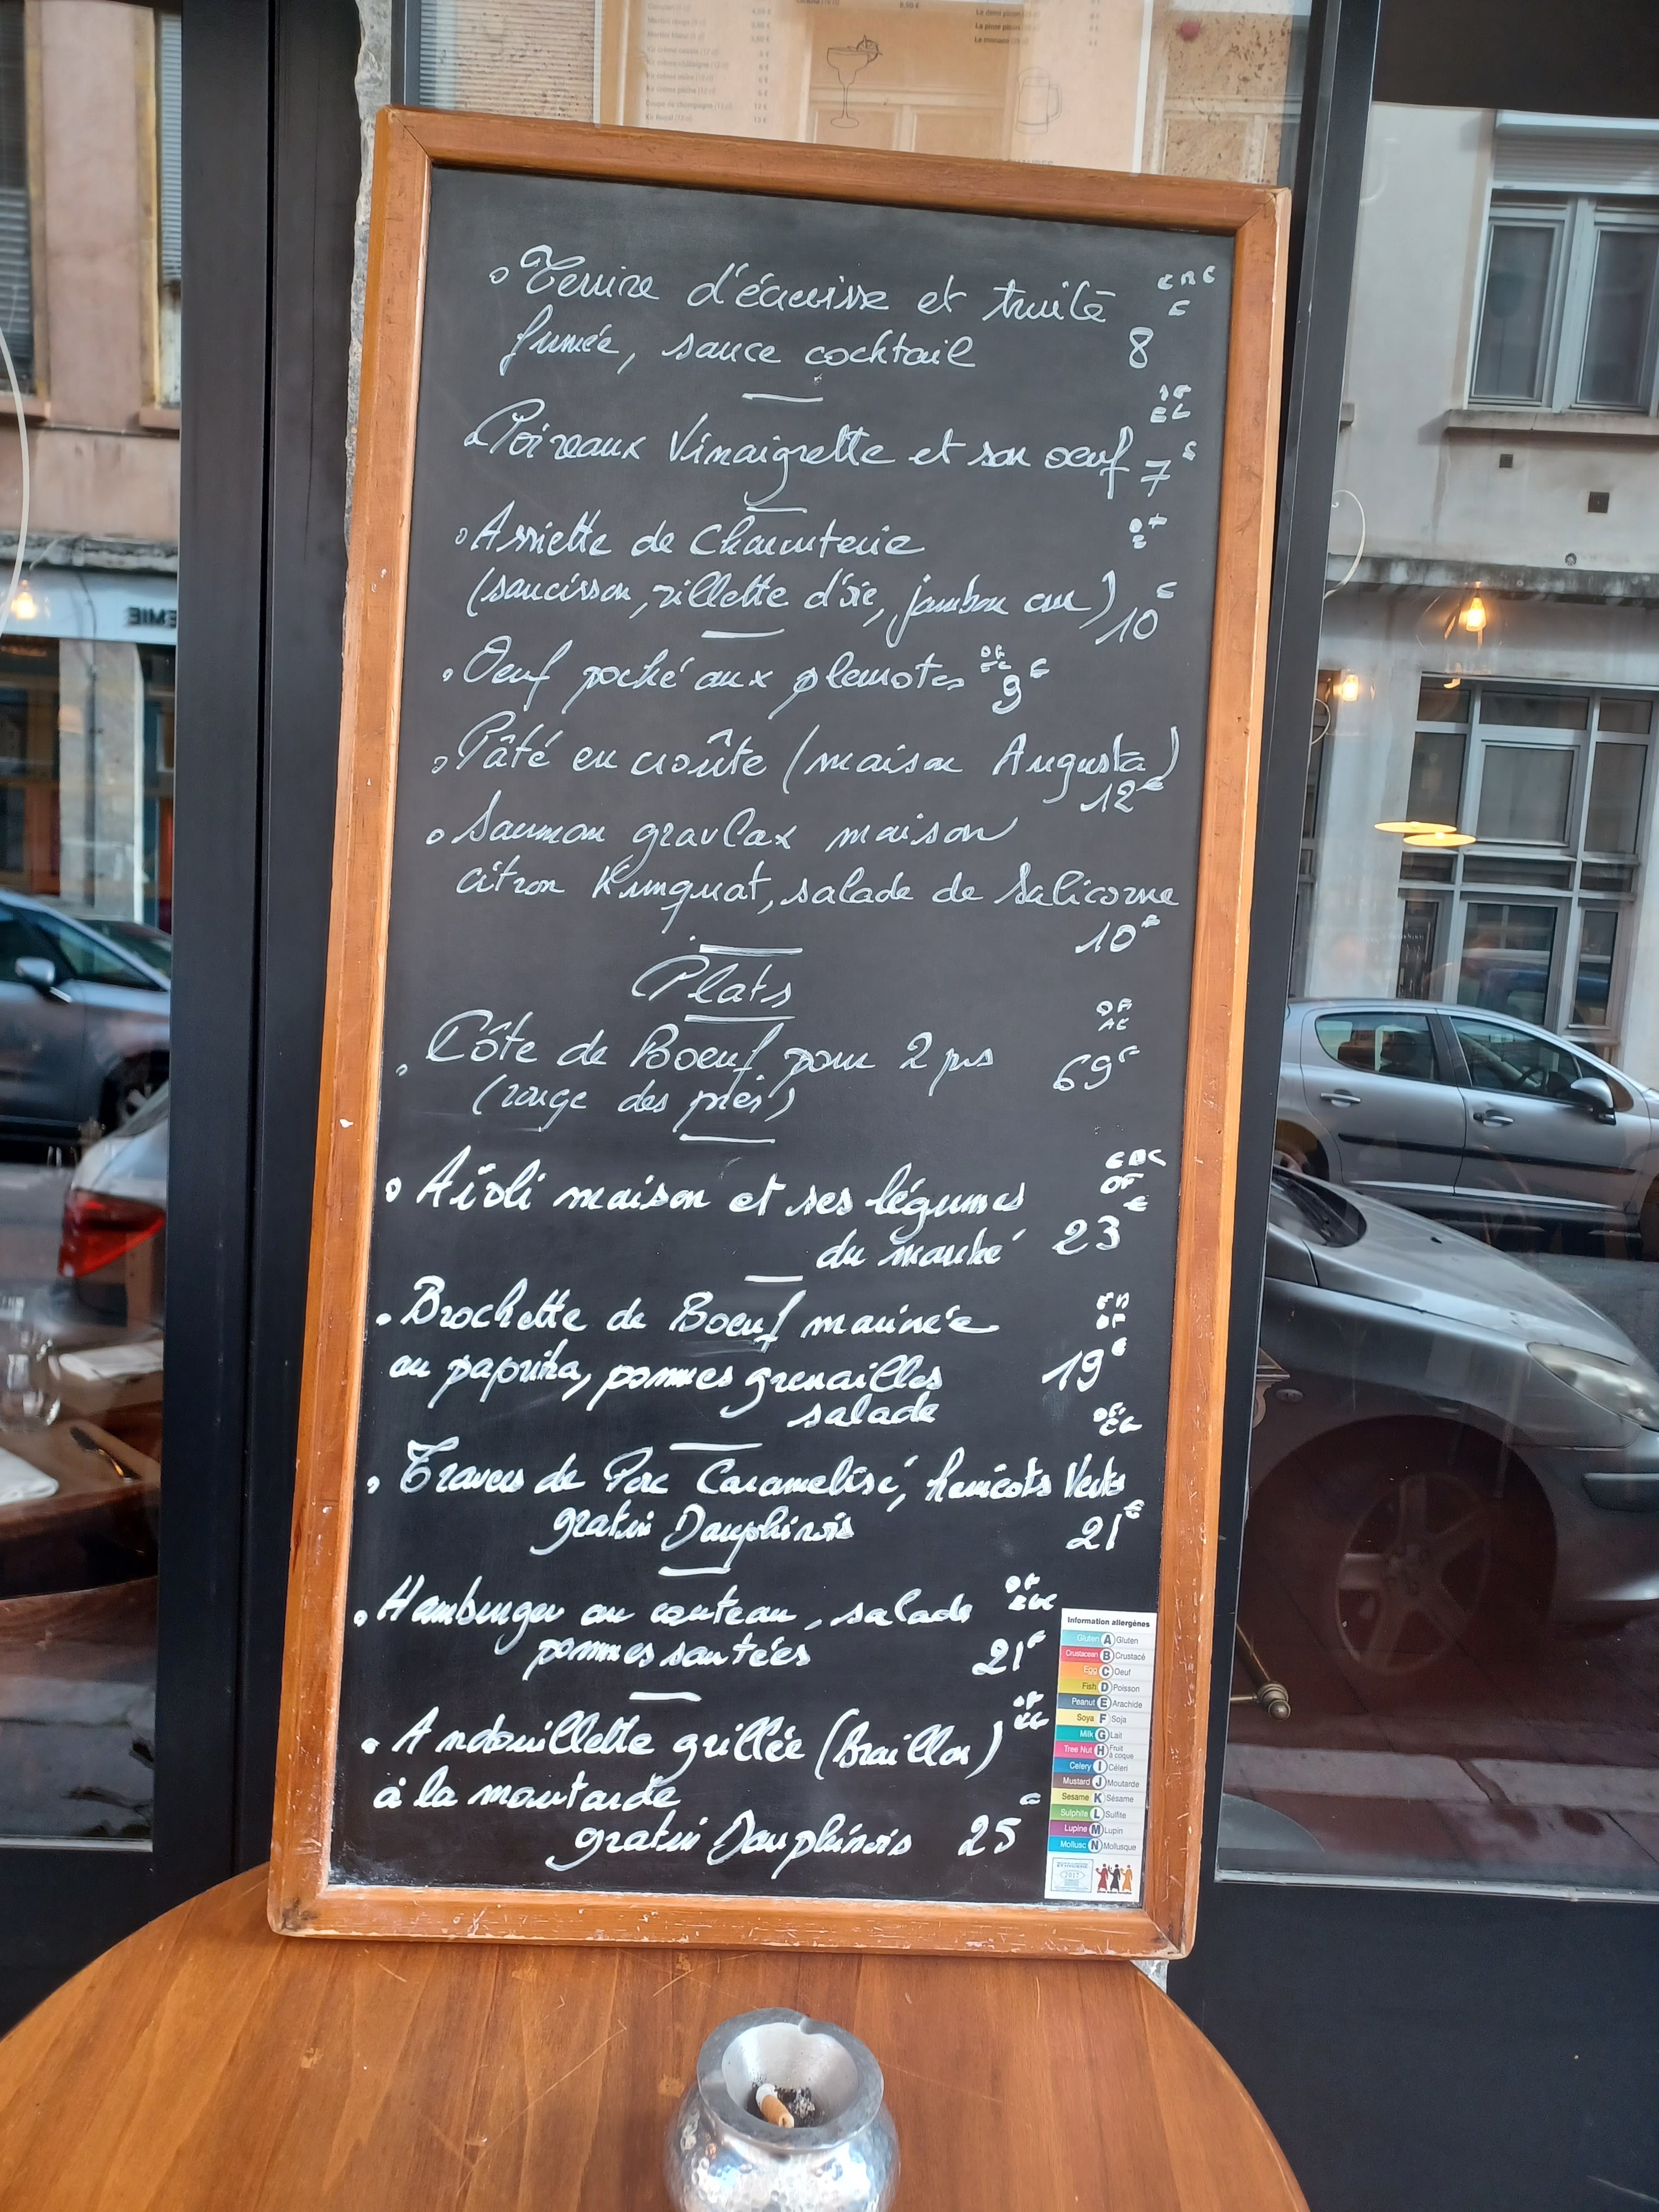 Terrine d'écrevisse et truite
fumée, sauce cocktail 8
Poireaux Vinaigrette et son oeuf 7€
Assiette de Charcuterie
(saucisson, rillette d'oie, jambon cru) 10€
Oeuf poché aux pleurotes 9€
Pâté en croûte (maison Augusta)
12€
Saumon gravlax maison
citron Kumquat, salade de Salicorne
10€
Plats
Côte de Boeuf pour 2 prs 69€
(rouge des prés)
Aïoli maison et ses légumes
du marché 23€
Brochette de Boeuf marinée
au paprika, pommes grenailles 19€
salade
Travers de Porc Caramelisé, haricots Verts
gratin Dauphinois 21€
Hamburger au couteau, salade
pommes sautées 21€
Andouillette grillée (Braillon)
à la moutarde
gratin Dauphinois 25€
Information allergènes
Gluten A Gluten
Crustacean B Crustacé
Egg C Oeuf
Fish D Poisson
Peanut E Arachide
Soya F Soja
Milk G Lait
Tree Nut H Fruit à coque
Celery I Céleri
Mustard J Moutarde
Sesame K Sésame
Sulphite L Sulfite
Lupine M Lupin
Mollusc N Mollusque
2017